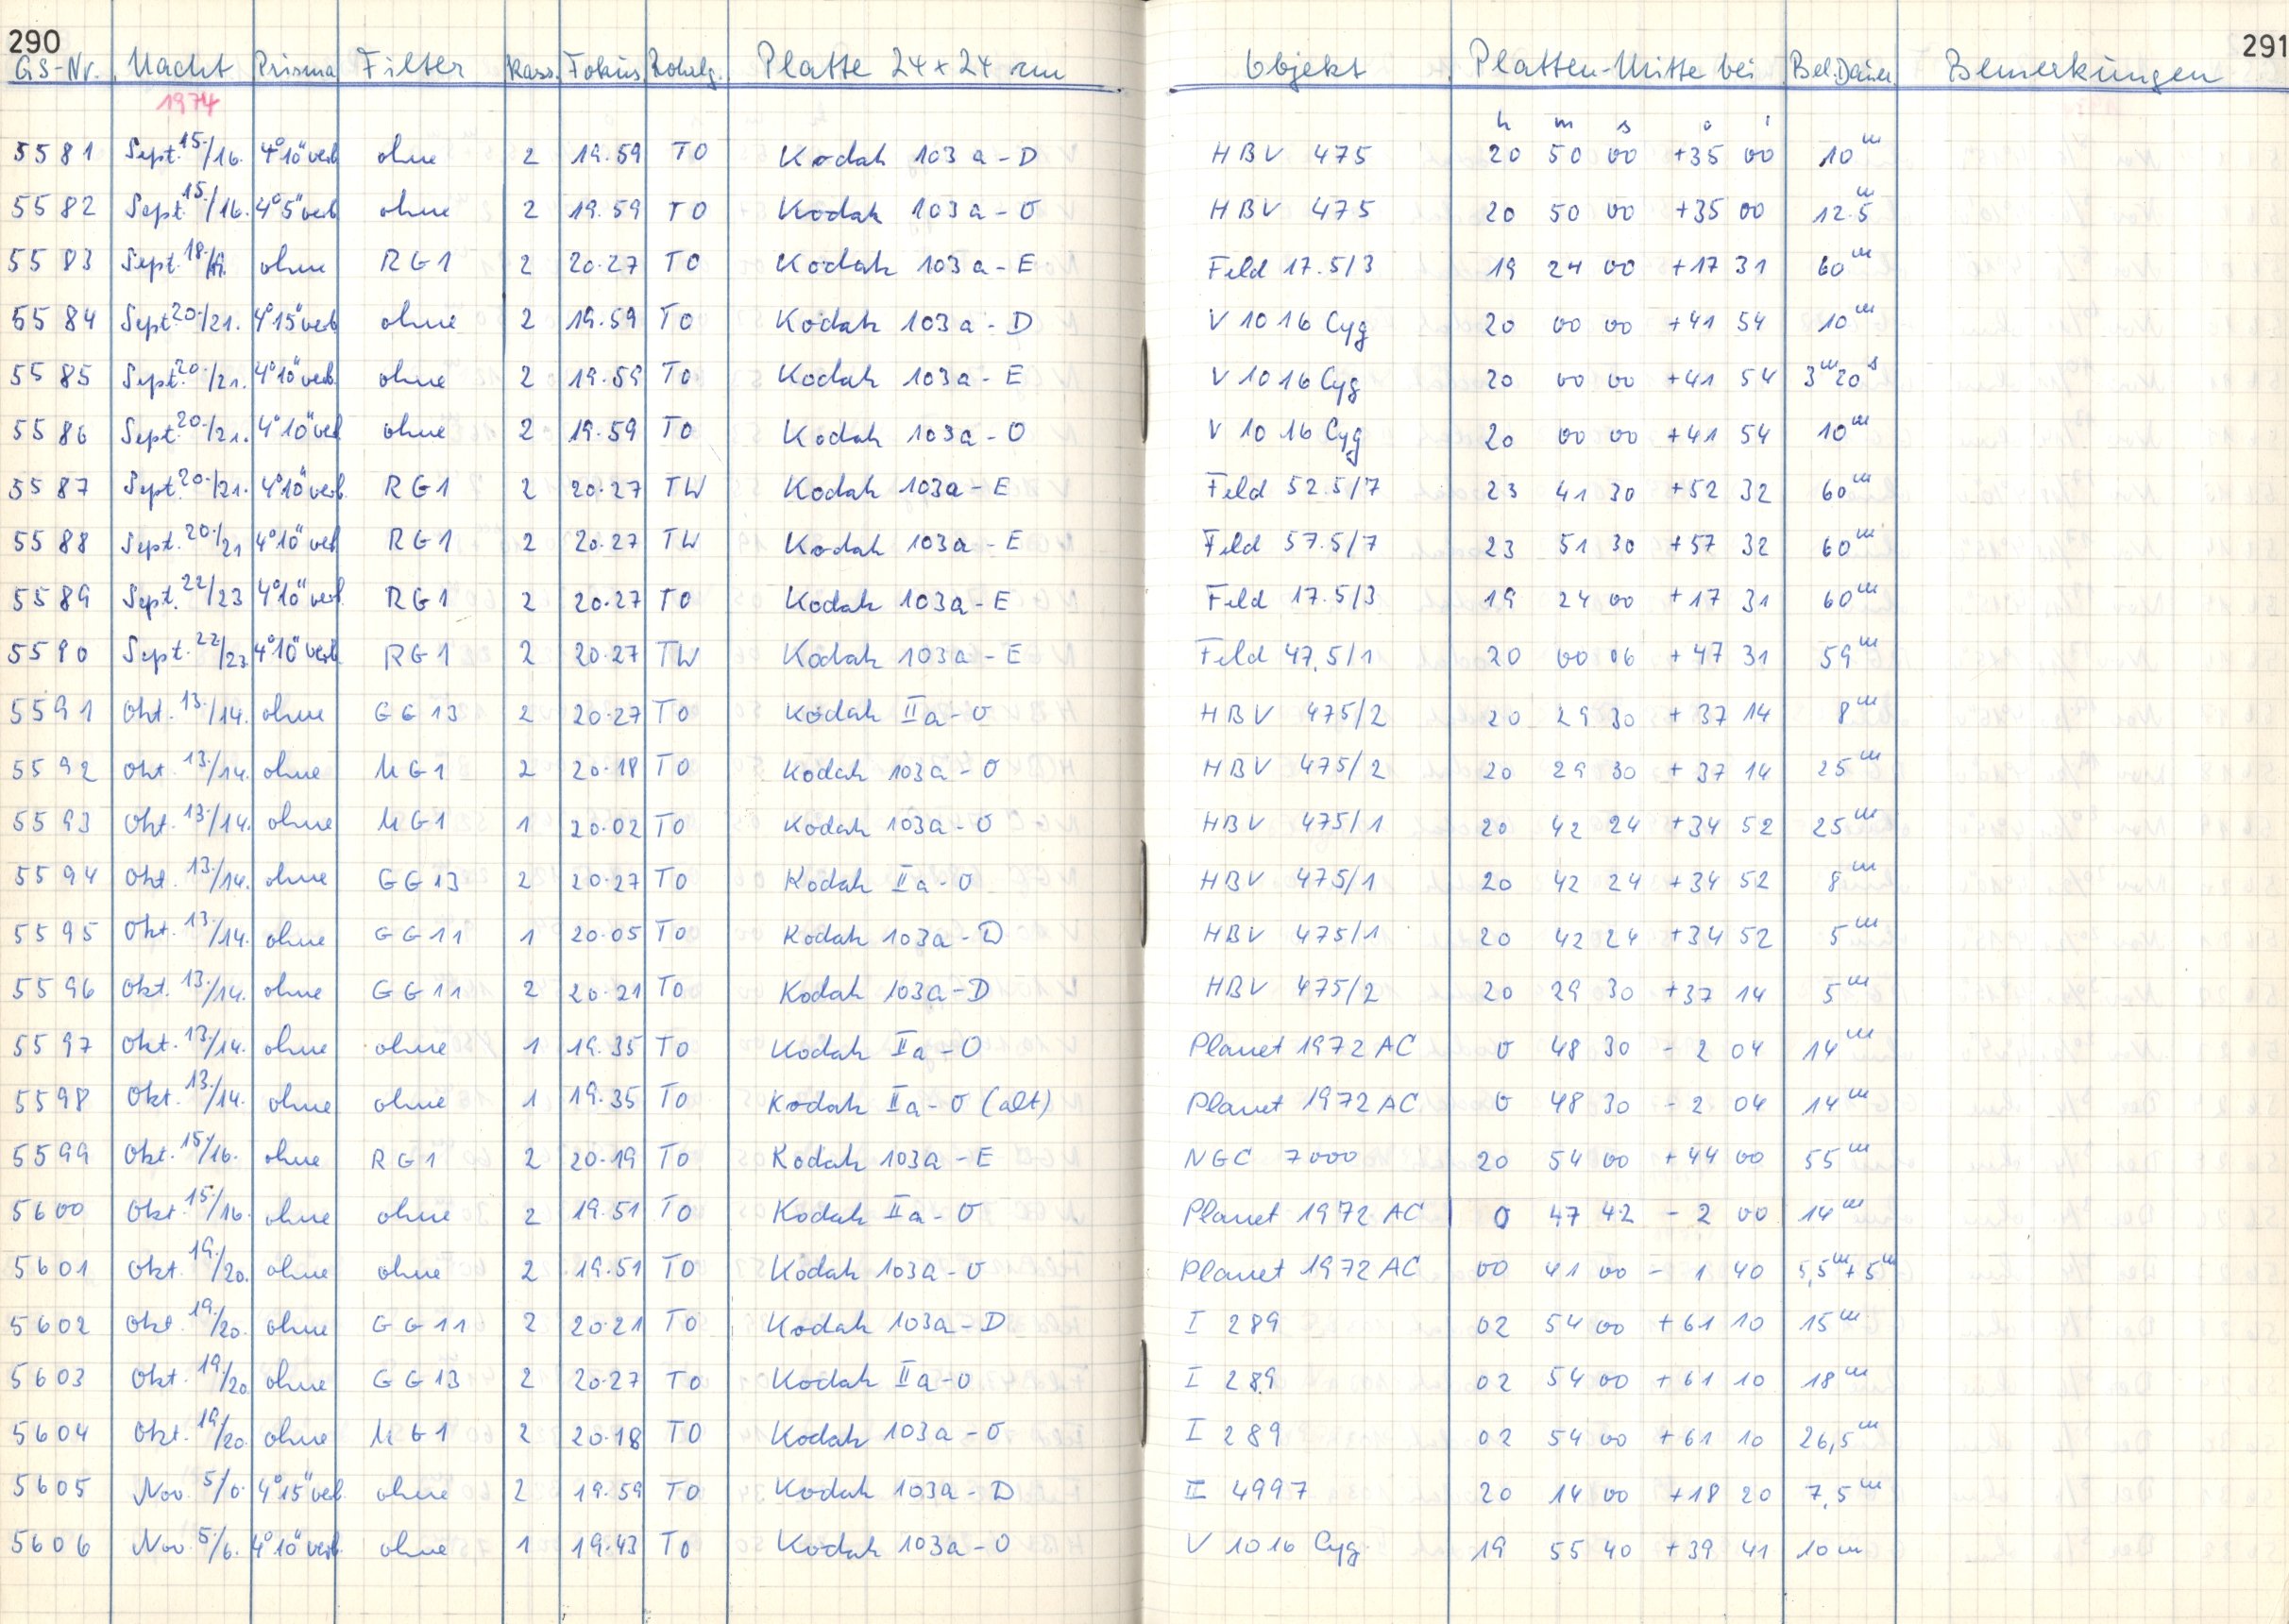 290
291
GS-Nr. Nacht Prisma Filter Kass. Fokus Rohrlg. Platte 24 x 24 cm Objekt Platten-Mitte bei Bel.Dauer Bemerkungen
1974
h m s ° '
5581 Sept. 15./16. 4°10" verb. ohne 2 19.59 TO Kodak 103a-D HBV 475 20 50 00 +35 00 10m
5582 Sept. 15./16. 4°5" verb. ohne 2 19.59 TO Kodak 103a-O HBV 475 20 50 00 +35 00 12.5m
5583 Sept. 18./19. ohne RG1 2 20.27 TO Kodak 103a-E Feld 17.5/3 19 24 00 +17 31 60m
5584 Sept. 20./21. 4°15" verb. ohne 2 19.59 TO Kodak 103a-D V 1016 Cyg 20 00 00 +41 54 10m
5585 Sept. 20./21. 4°10" verb. ohne 2 19.59 TO Kodak 103a-E V 1016 Cyg 20 00 00 +41 54 3m20s
5586 Sept. 20./21. 4°10" verb. ohne 2 19.59 TO Kodak 103a-O V 1016 Cyg 20 00 00 +41 54 10m
5587 Sept. 20./21. 4°10" verb. RG1 2 20.27 TW Kodak 103a-E Feld 52.5/7 23 41 30 +52 32 60m
5588 Sept. 20./21 4°10" verb. RG1 2 20.27 TW Kodak 103a-E Feld 57.5/7 23 51 30 +57 32 60m
5589 Sept. 22/23 4°10" verb. RG1 2 20.27 TO Kodak 103a-E Feld 17.5/3 19 24 00 +17 31 60m
5590 Sept. 22/23. 4°10" verb. RG1 2 20.27 TW Kodak 103a-E Feld 47.5/1 20 00 06 +47 31 59m
5591 Okt. 13./14. ohne GG13 2 20.27 TO Kodak IIa-O HBV 475/2 20 29 30 +37 14 8m
5592 Okt. 13./14. ohne UG1 2 20.18 TO Kodak 103a-O HBV 475/2 20 29 30 +37 14 25m
5593 Okt. 13./14. ohne UG1 1 20.02 TO Kodak 103a-O HBV 475/1 20 42 24 +34 52 25m
5594 Okt. 13./14. ohne GG13 2 20.27 TO Kodak IIa-O HBV 475/1 20 42 24 +34 52 8m
5595 Okt. 13./14. ohne GG11 1 20.05 TO Kodak 103a-D HBV 475/1 20 42 24 +34 52 5m
5596 Okt. 13./14. ohne GG11 2 20.21 TO Kodak 103a-D HBV 475/2 20 29 30 +37 14 5m
5597 Okt. 13/14. ohne ohne 1 19.35 TO Kodak IIa-O Planet 1972 AC 0 48 30 -2 04 14m
5598 Okt. 13./14. ohne ohne 1 19.35 TO Kodak IIa-O (alt) Planet 1972 AC 0 48 30 -2 04 14m
5599 Okt. 15./16. ohne RG1 2 20.19 TO Kodak 103a-E NGC 7000 20 54 00 +44 00 55m
5600 Okt. 15/16. ohne ohne 2 19.51 TO Kodak IIa-O Planet 1972 AC 0 47 42 -2 00 14m
5601 Okt. 19./20. ohne ohne 2 19.51 TO Kodak 103a-O Planet 1972 AC 00 41 00 -1 40 5,5m+5m
5602 Okt. 19./20. ohne GG11 2 20.21 TO Kodak 103a-D I 289 02 54 00 +61 10 15m
5603 Okt. 19./20. ohne GG13 2 20.27 TO Kodak IIa-O I 289 02 54 00 +61 10 18m
5604 Okt. 19/20. ohne UG1 2 20.18 TO Kodak 103a-O I 289 02 54 00 +61 10 26,5m
5605 Nov. 5/6. 4°15" verb. ohne 2 19.59 TO Kodak 103a-D II 4997 20 14 00 +18 20 7,5m
5606 Nov. 5/6. 4°10" verb. ohne 1 19.43 TO Kodak 103a-O V 1016 Cyg. 19 55 40 +39 41 10m